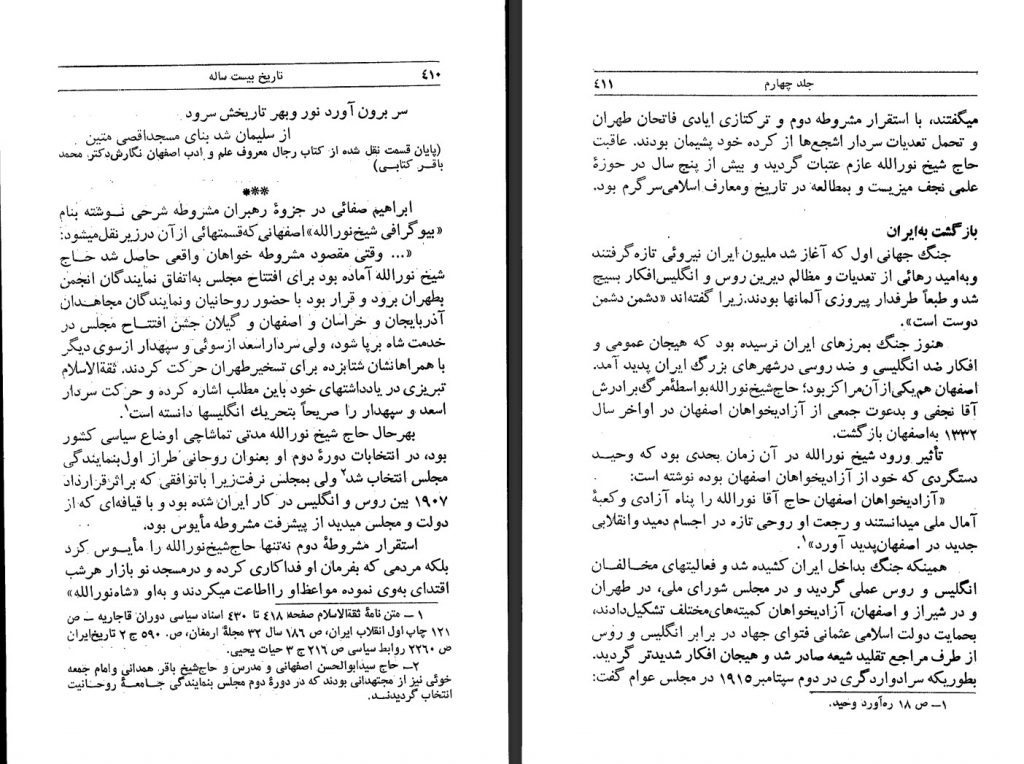 ۴۱۰
تاریخ بیست ساله
سر برون آورد نور وبهر تاریخش سرود
از سلیمان شد بنای مسجداقصی متین
(پایان قسمت نقل شده از کتاب رجال معروف علم و ادب اصفهان نگارش‌دکتر محمد
باقر کتابی)
***
ابراهیم صفائی در جزوهٔ رهبران مشروطه شرحی نوشته بنام
«بیوگرافی شیخ‌نورالله» اصفهانی که‌قسمتهائی از آن درزیر نقل‌میشود:
«... وقتی مقصود مشروطه خواهان واقعی حاصل شد حاج
شیخ نورالله آماده بود برای افتتاح مجلس به‌اتفاق نمایندگان انجمن
بطهران برود و قرار بود با حضور روحانیان ونمایندگان مجاهدان
آذربایجان و خراسان و اصفهان و گیلان جشن افتتاح مجلس در
خدمت شاه برپا شود، ولی سرداراسعد ازسوئی و سپهدار ازسوی دیگر
با همراهانشان شتابزده برای تسخیرطهران حرکت کردند. ثقةالاسلام
تبریزی در یادداشتهای خود باین مطلب اشاره کرده و حرکت سردار
اسعد و سپهدار را صریحاً بتحریك انگلیسها دانسته است۱.
بهرحال حاج شیخ نورالله مدتی تماشاچی اوضاع سیاسی کشور
بود، در انتخابات دورهٔ دوم او بعنوان روحانی طراز اول‌بنمایندگی
مجلس انتخاب شد۲ ولی بمجلس نرفت‌زیرا باتوافقی که براثرقرارداد
۱۹۰۷ بین روس و انگلیس در کار ایران شده بود و با قیافه‌ای که از
دولت و مجلس میدید از پیشرفت مشروطه مأیوس بود.
استقرار مشروطهٔ دوم نه‌تنها حاج‌شیخ‌نورالله را مأیوس کرد
بلکه مردمی که بفرمان او فداکاری کرده و درمسجد نو بازار هرشب
اقتدای به‌وی نموده مواعظ‌او رااطاعت میکردند و به‌او «شاه‌نورالله»
۱ــ متن نامهٔ ثقةالاسلام صفحه ۴۱۸ تا ۴۳۰ اسناد سیاسی دوران قاجاریه ــ ص
۱۲۱ چاپ اول انقلاب ایران، ص ۱۸۶ سال ۳۲ مجلهٔ ارمغان، ص. ۵۹۰ ج ۲ تاریخ‌ایران
ص ۲۲۶۰ روابط سیاسی ص ۲۱۶ ج ۳ حیات یحیی.
۲ــ حاج سیدابوالحسن اصفهانی و مدرس و حاج‌شیخ باقر همدانی وامام جمعه
خوئی نیز از مجتهدانی بودند که در دورهٔ دوم مجلس بنمایندگی جامعهٔ روحانیت
انتخاب گردیدند.
جلد چهارم
۴۱۱
میگفتند، با استقرار مشروطه دوم و ترکتازی ایادی فاتحان طهران
و تحمل تعدیات سردار اشجع‌ها از کرده خود پشیمان بودند. عاقبت
حاج شیخ نورالله عازم عتبات گردید و بیش از پنج سال در حوزهٔ
علمی نجف میزیست و بمطالعه در تاریخ ومعارف اسلامی‌سرگرم بود.
بازگشت به‌ایران
جنگ جهانی اول که آغاز شد ملیون ایران نیروئی تازه‌گرفتند
وبه‌امید رهائی از تعدیات و مظالم دیرین روس و انگلیس‌افکار بسیج
شد و طبعاً طرفدار پیروزی آلمانها بودند.زیرا گفته‌اند «دشمن دشمن
دوست است».
هنوز جنگ بمرزهای ایران نرسیده بود که هیجان عمومی و
افکار ضد انگلیسی و ضد روسی درشهرهای بزرگ ایران پدید آمد.
اصفهان هم‌یکی‌از آن‌مراکز بود؛ حاج‌شیخ‌نورالله‌بواسطهٔ‌مرگ‌برادرش
آقا نجفی و بدعوت جمعی از آزادیخواهان اصفهان در اواخر سال
۱۳۳۲ به‌اصفهان بازگشت.
تأثیر ورود شیخ نورالله در آن زمان بحدی بود که وحید
دستگردی که خود از آزادیخواهان اصفهان بوده نوشته است:
«آزادیخواهان اصفهان حاج آقا نورالله را پناه آزادی وکعبهٔ
آمال ملی میدانستند و رجعت او روحی تازه در اجسام دمید وانقلابی
جدید در اصفهان‌پدید آورد»۱.
همینکه جنگ بداخل ایران کشیده شد و فعالیتهای مخالفان
انگلیس و روس عملی گردید و در مجلس شورای ملی، در طهران
و در شیراز و اصفهان، آزادیخواهان کمیته‌های‌مختلف تشکیل‌دادند،
بحمایت دولت اسلامی عثمانی فتوای جهاد در برابر انگلیس و روس
از طرف مراجع تقلید شیعه صادر شد و هیجان افکار شدیدتر گردید.
بطوریکه سرادواردگری در دوم سپتامبر۱۹۱۵ در مجلس عوام گفت:
۱ــ ص ۱۸ ره‌آورد وحید.